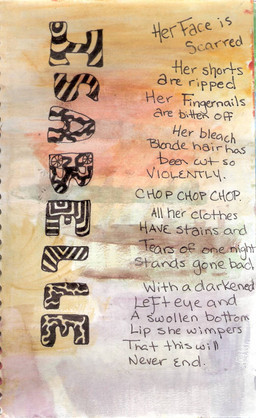 ISABELLE
Her Face is
Scarred
Her shorts
are ripped
Her Fingernails
are bitten off
Her bleach
Blonde hair has
been cut so
VIOLENTLY.
CHOP CHOP CHOP.
All her clothes
HAVE stains and
Tears of one night
Stands gone bad
With a darkened
Left eye and
A swollen bottom
Lip she wimpers
That this will
Never End.